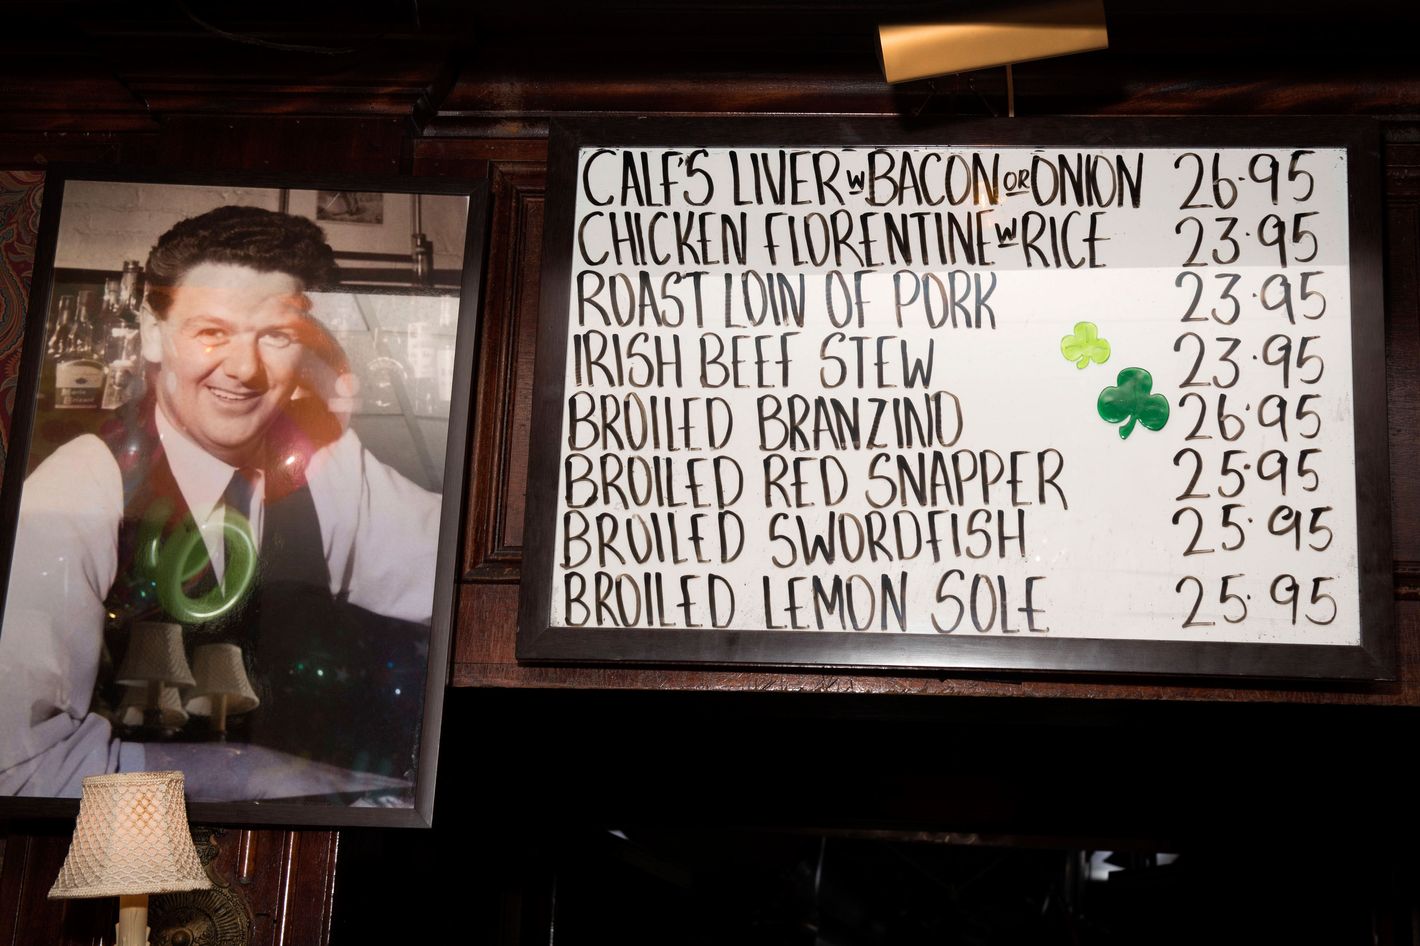 CALF'S LIVER W BACON OR ONION 26.95
CHICKEN FLORENTINE W RICE 23.95
ROAST LOIN OF PORK 23.95
IRISH BEEF STEW 23.95
BROILED BRANZINO 26.95
BROILED RED SNAPPER 25.95
BROILED SWORDFISH 25.95
BROILED LEMON SOLE 25.95